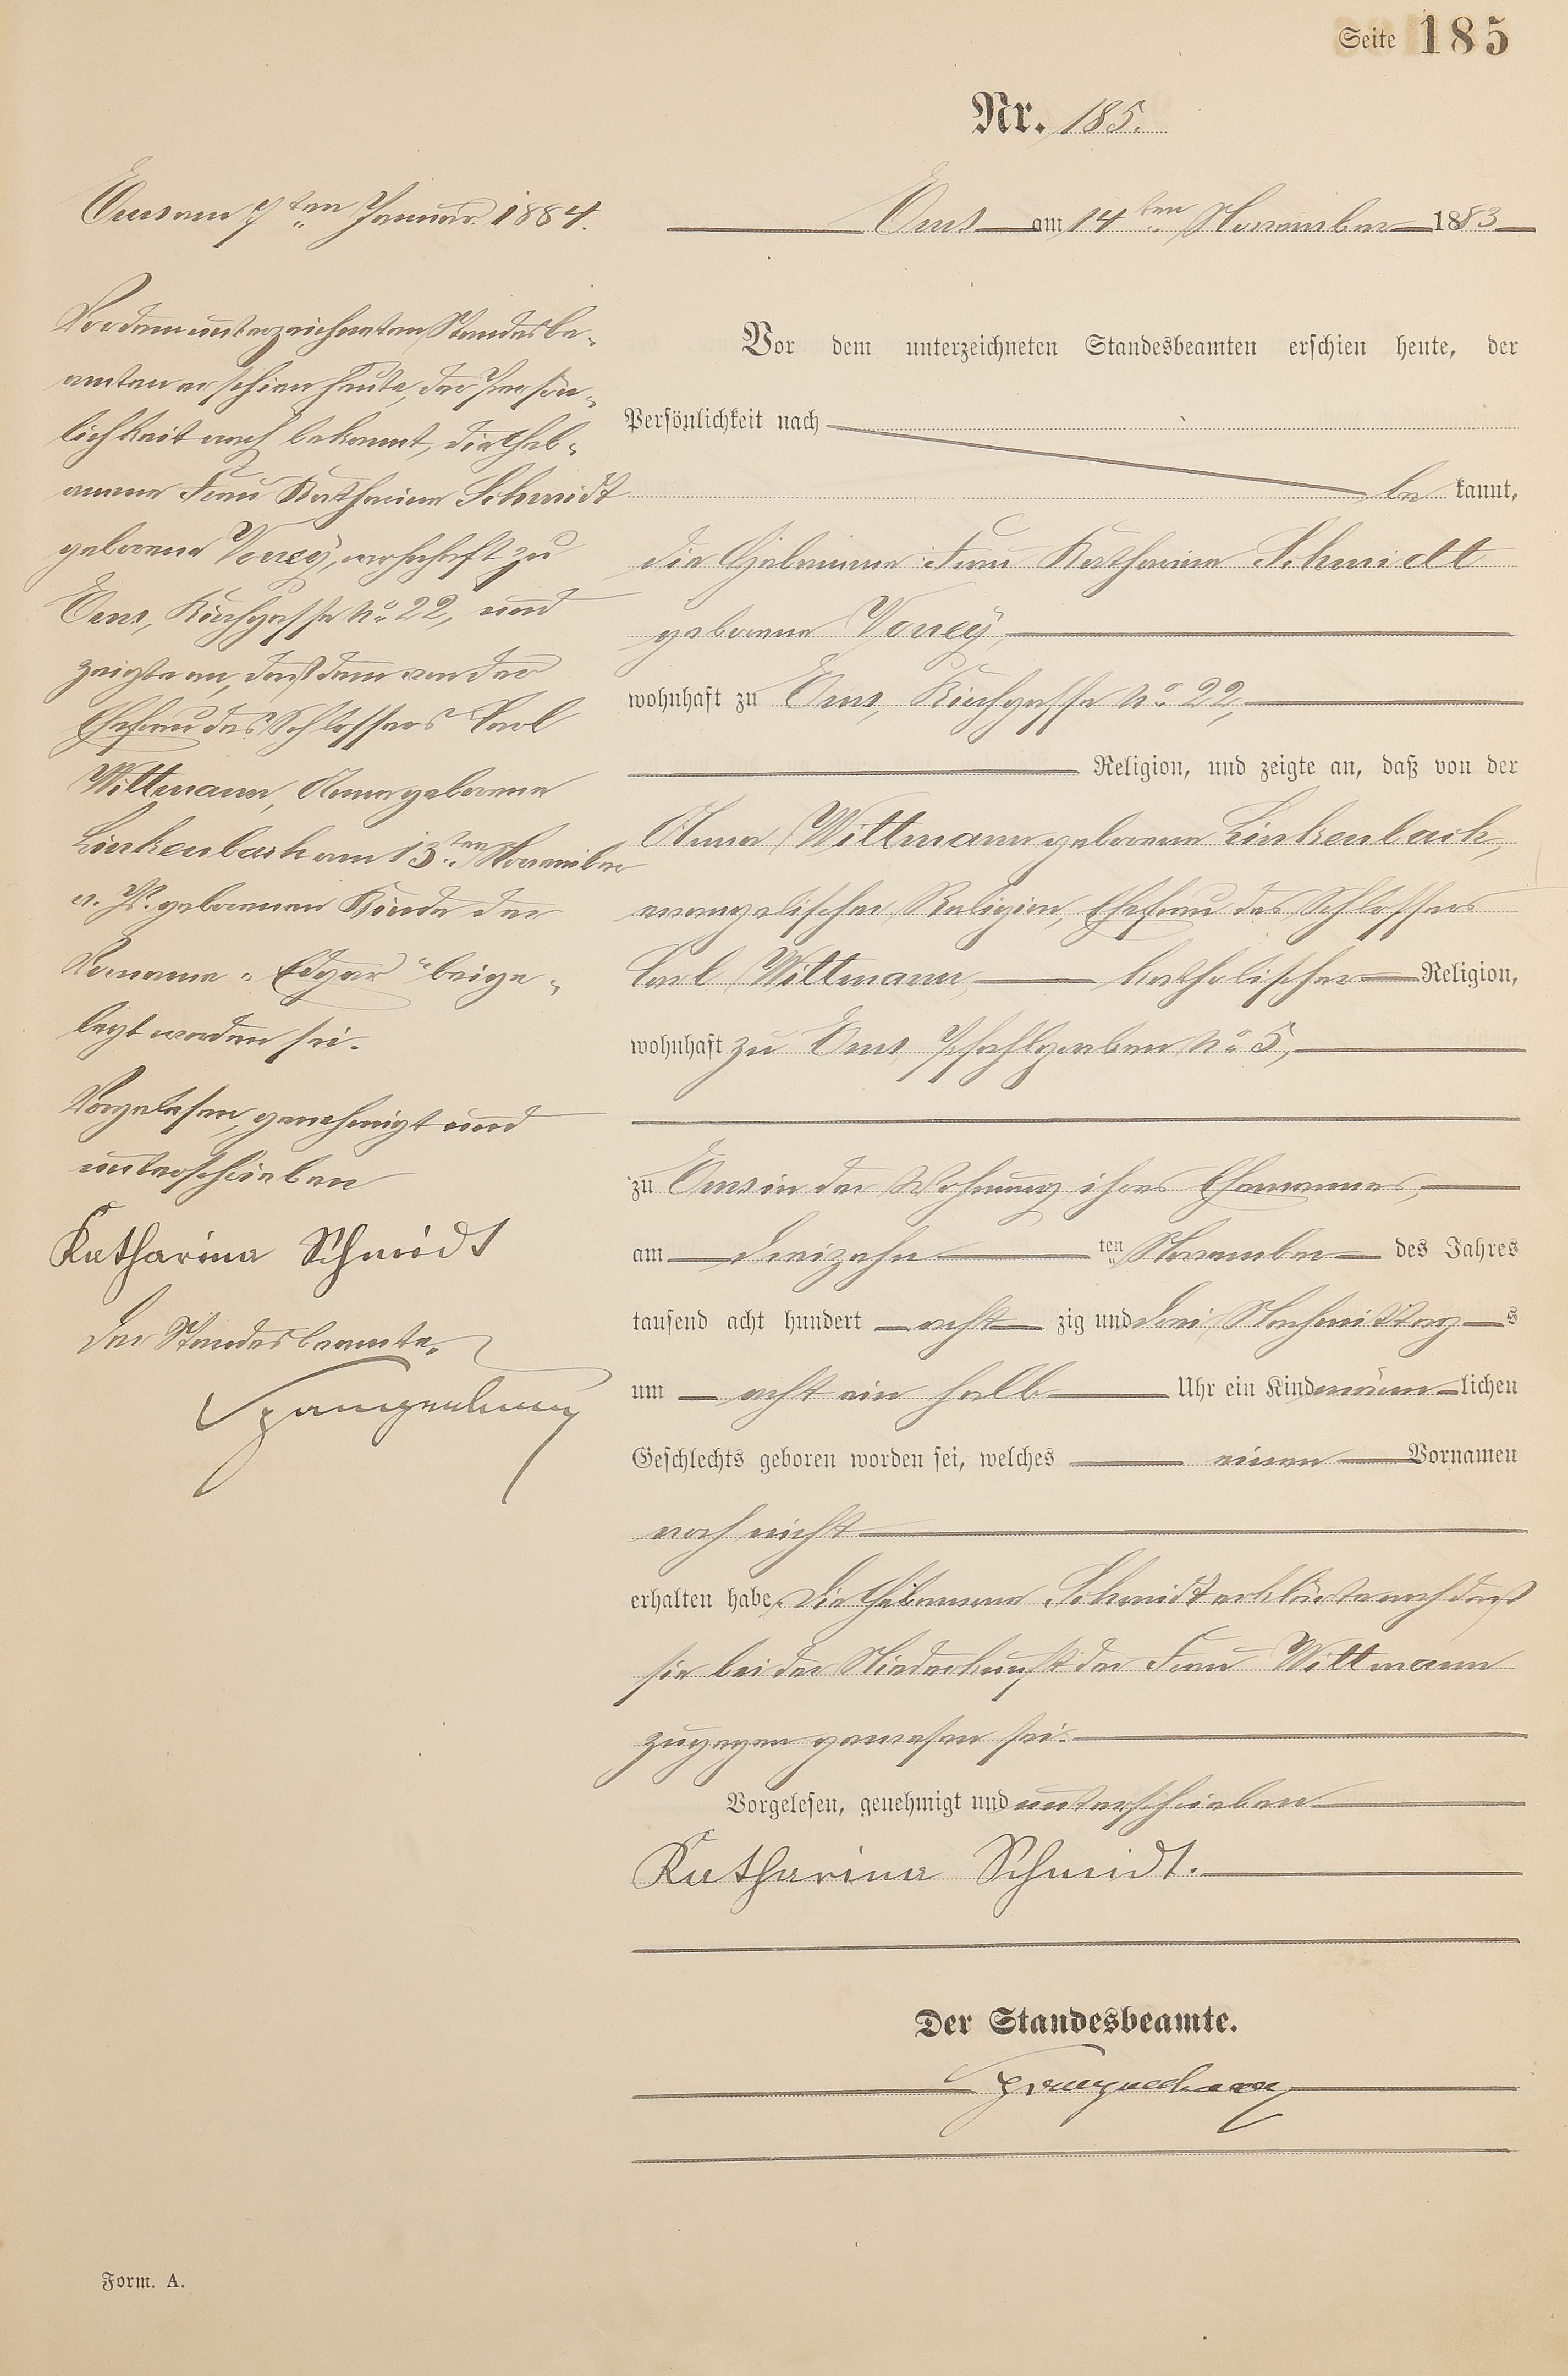 Seite 185
Nr. 185.
Ems am 14ten November 1883
Vor dem unterzeichneten Standesbeamten erschien heute, der
Persönlichkeit nach
be kannt,
die Hebamme Frau Katharina Schmidt
geborene
wohnhaft zu Ems, Kirchgasse No. 22,
Religion, und zeigte an, daß von der
Anna Wittmann geborene Linkenbach,
evangelischer Religion, Ehefrau des Schlossers
Carl Wittmann, katholischer Religion,
wohnhaft zu Ems Pfahlgraben No. 5,
zu Ems in der Wohnung ihres Ehemannes,
am dreizehn ten November des Jahres
tausend acht hundert acht zig und drei Nachmittag s
um acht ein halb Uhr ein Kind männ lichen
Geschlechts geboren worden sei, welches einen Vornamen
noch nicht
erhalten habe. Die Hebamme Schmidt erklärte noch daß
sie bei der Niederkunft der Frau Wittmann
zugegen gewesen sei.
Vorgelesen, genehmigt und unterschrieben
Katharina Schmidt.
Der Standesbeamte.
Spangenberg
Ems am 7ten Januar 1884.
Vor dem unterzeichneten Standesbe-
amten erschien heute, der Persön-
lichkeit nach bekannt, die Heb-
amme Frau Katharina Schmidt
geborene wohnhaft zu
Ems, Kirchgasse No. 22, und
zeigte an, daß dem von der
Ehefrau des Schlossers Carl
Wittmann, Anna geborene
Linkenbach am 13ten November
v. Js. geborenen Kinde der
Vorname „Edgar“ beige-
legt worden sei.
Vorgelesen, genehmigt und
unterschrieben
Katharina Schmidt
Der Standesbeamte.
Spangenberg
Form. A.